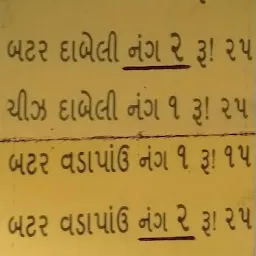 બટર દાબેલી નંગ ૨ રૂ! ૨૫
ચીઝ દાબેલી નંગ ૧ રૂ! ૨૫
બટર વડાપાંઉ નંગ ૧ રૂ! ૧૫
બટર વડાપાંઉ નંગ ૨ રૂ! ૨૫